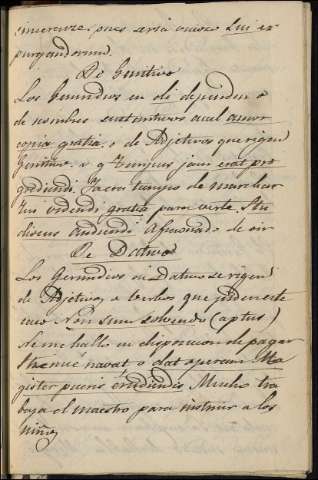 pues seria vicioso Lui ex
purgandorum
De Genitivo
Los Gerundios en di dependen o
de nombres sustantivos
copia, gratia, o de Adjetivos que rigen
Genitivo, v. g. Tempus jam erat pro
grediendi. Ya era tiempo de marchar
Tui videndi gratia para verte. Stu
diosus audiendi aficionado de oir
De Dativo
Los Gerundios en Dativo se rigen
de Adjetivos, o verbos que piden este
caso. Non sum solvendo (aptus)
No me hallo en disposicion de pagar
Strenué navat o dat operam Ma
gister pueris erudiendis Mucho tra
baja el maestro para instruir a los
niños